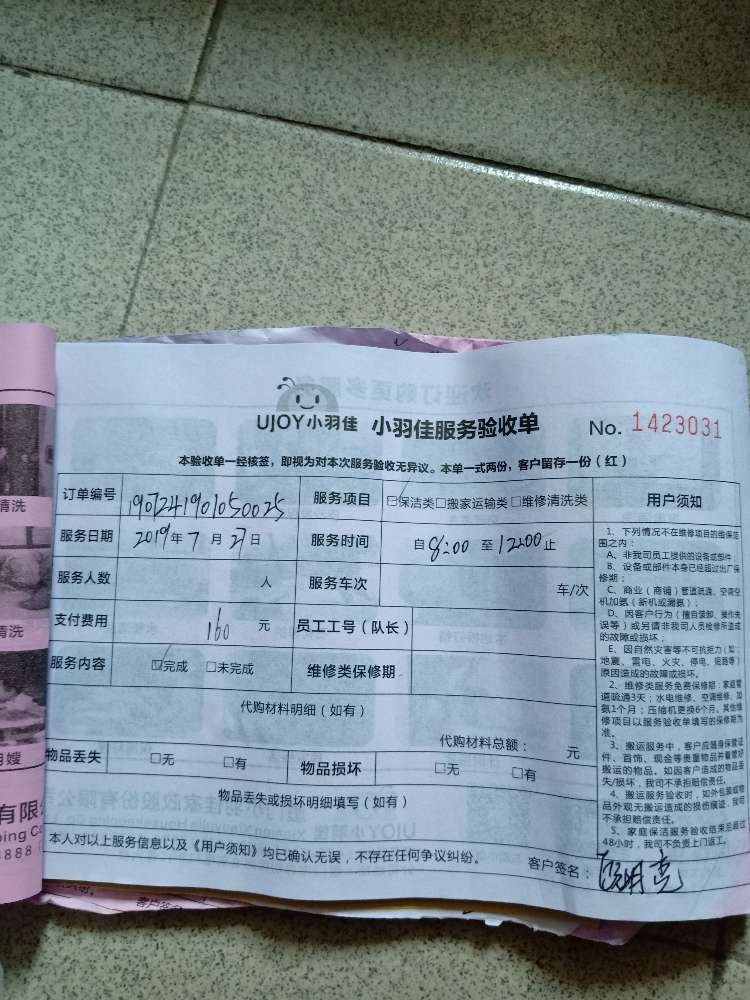 UJOY小羽佳 小羽佳服务验收单 No. 1423031
本验收单一经核签，即视为对本次服务验收无异议。本单一式两份，客户留存一份（红）
订单编号 1907241901050025 服务项目 ☑保洁类□搬家运输类□维修清洗类
服务日期 2019年7月27日 服务时间 自8:00至12:00止
服务人数 人 服务车次 车/次
支付费用 160元 员工工号（队长）
服务内容 ☑完成 □未完成 维修类保修期
代购材料明细（如有）
代购材料总额： 元
物品丢失 □无 □有 物品损坏 □无 □有
物品丢失或损坏明细填写（如有）
本人对以上服务信息以及《用户须知》均已确认无误，不存在任何争议纠纷。 客户签名：
用户须知
1、下列情况不在维修项目的维保范
围之内：
A、非我司员工提供的设备或部件
B、设备或部件本身已经超过出厂保
修期；
C、商业（商铺）管道疏通、空调空
机加氨（新机或漏氨）；
D、因客户行为（擅自装卸、操作失
误等）或另请非我司人员检修所造成
的故障或损坏；
E、因自然灾害等不可抗拒力（如：
地震、雷电、火灾、停电、短路等）
原因造成的故障或损坏。
2、维修类服务免费保修期：家庭管
道疏通3天；水电维修、空调维修、加
氨1个月；压缩机更换6个月。其他维
修项目以服务验收单填写的保修期为
准。
3、搬运服务中，客户应随身保管证
件、首饰、现金等贵重物品并看管好
搬运的物品。如因客户造成的物品丢
失/损坏，我司不承担赔偿责任。
4、搬运服务验收时，如外包装或物
品外观无搬运造成的损伤痕迹，我司
不承担赔偿责任。
5、家庭保洁服务验收结束后超过
48小时，我司不负责上门返工。
清洗
清洗
月嫂
有限
ping Co
8888